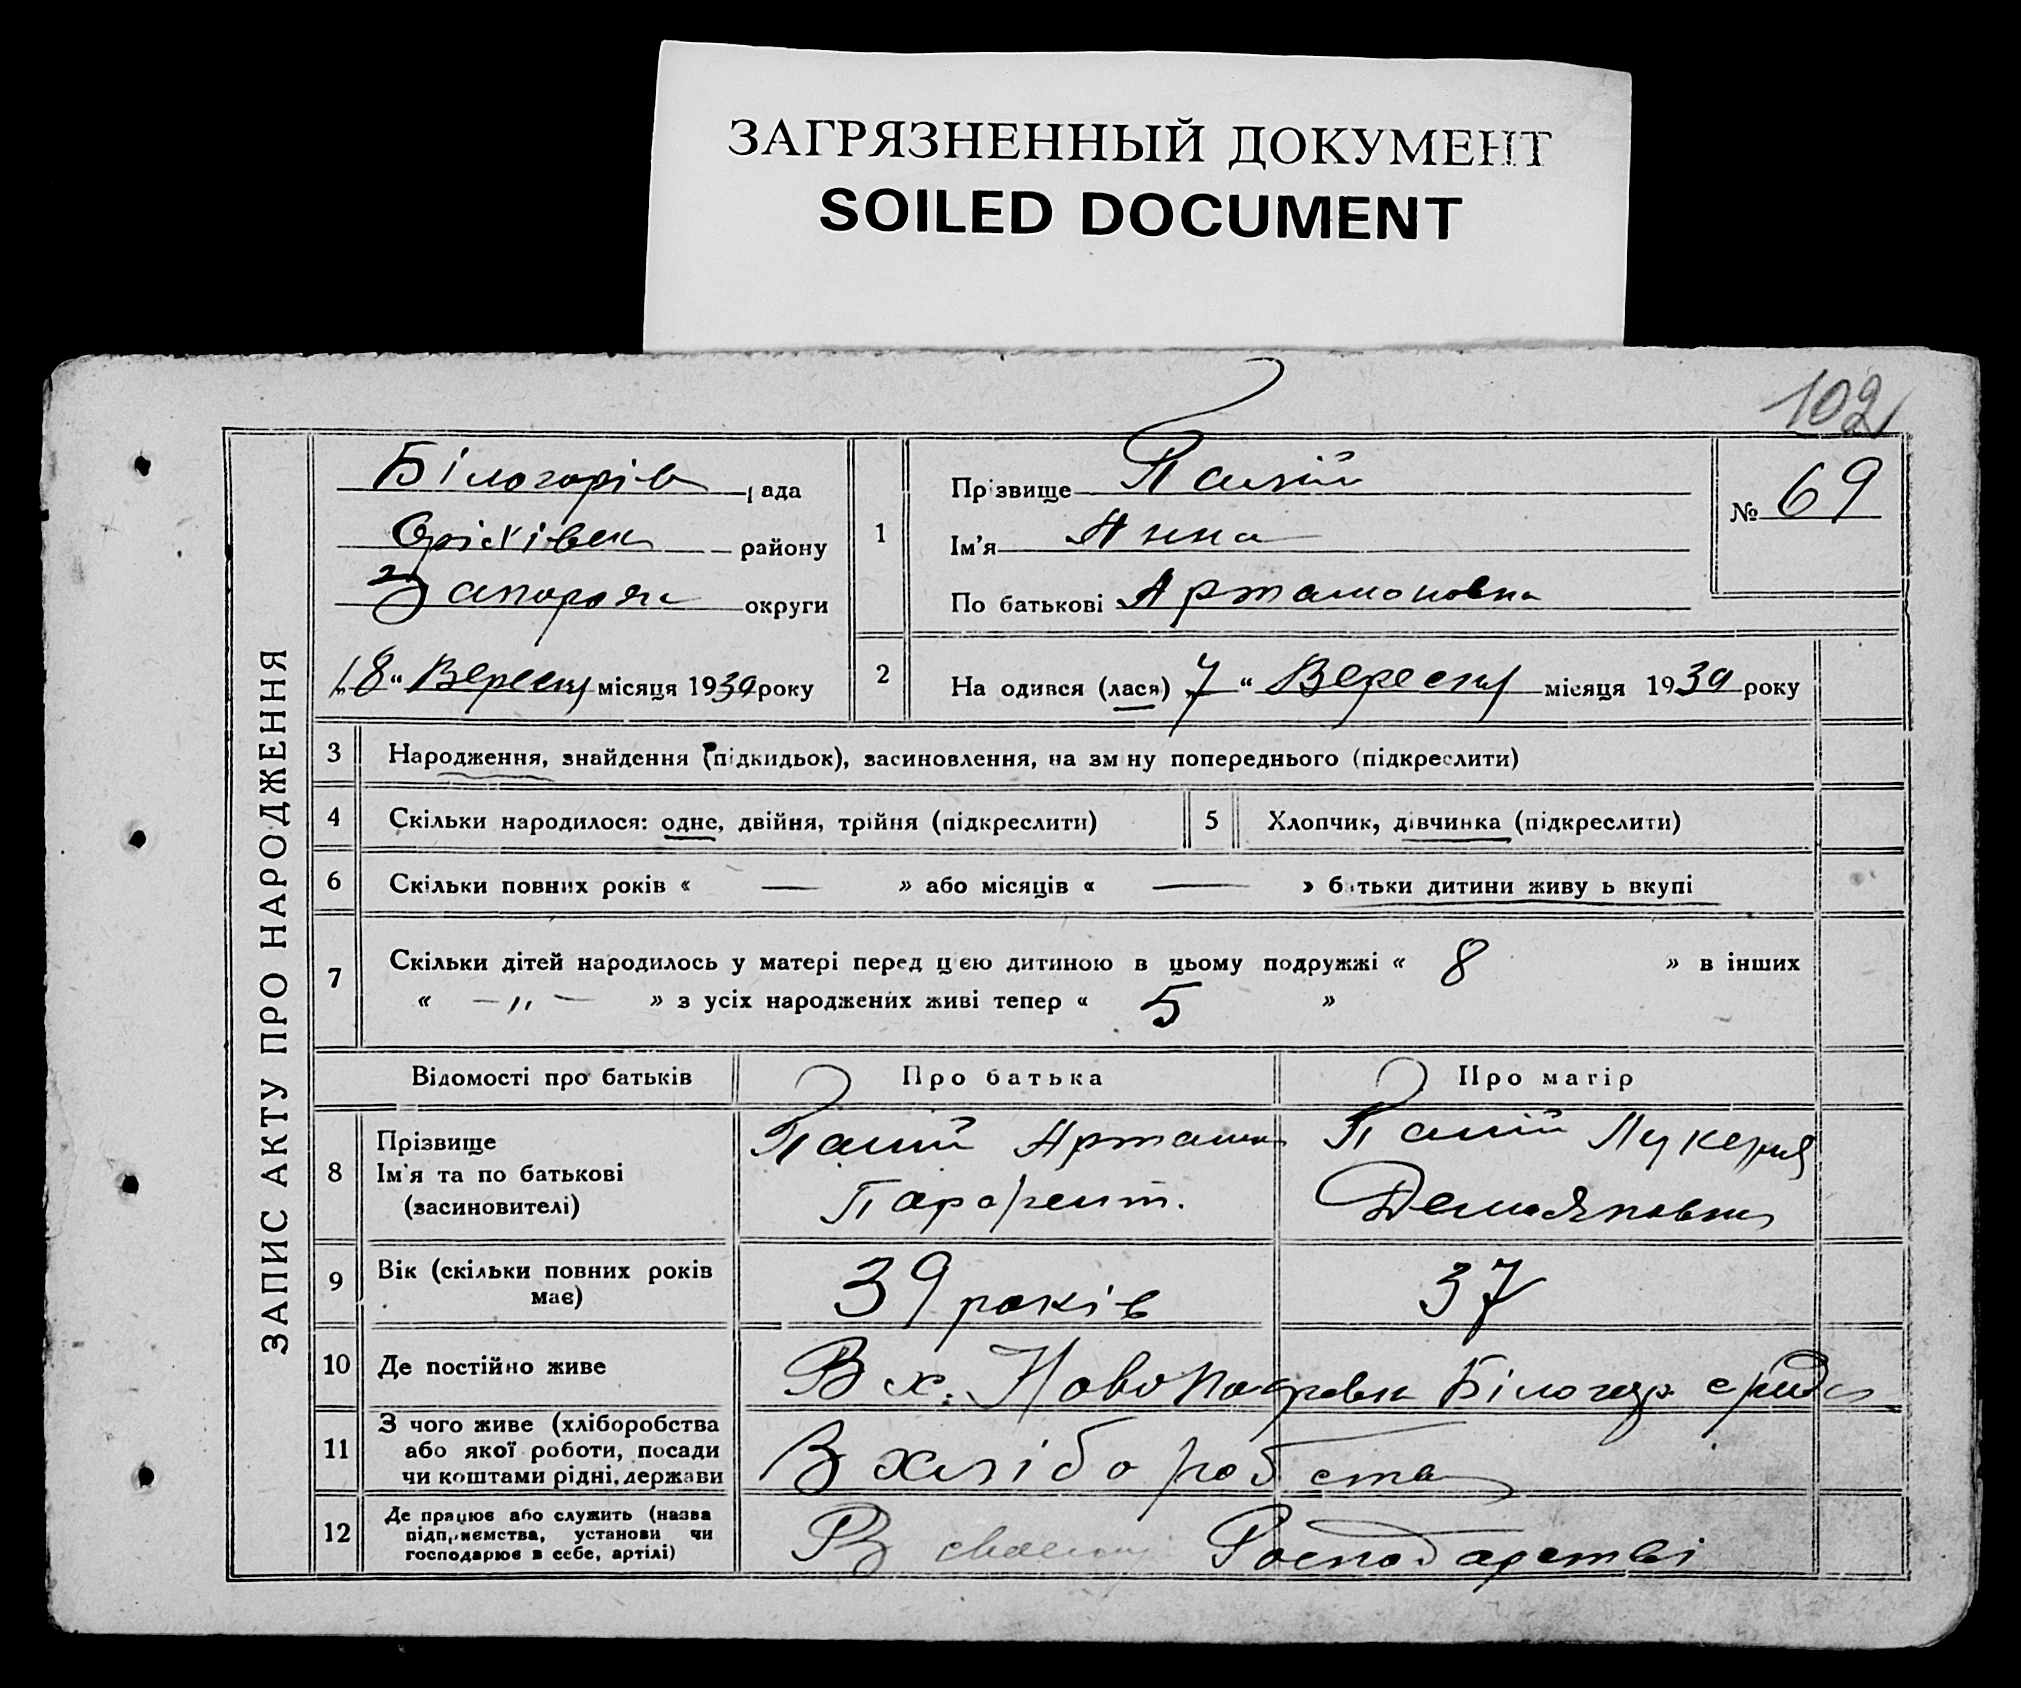 ЗАГРЯЗНЕННЫЙ ДОКУМЕНТ
SOILED DOCUMENT
102
ЗАПИС АКТУ ПРО НАРОДЖЕННЯ
Білогорів рада
Оріхівськ району
Запорож округи
„8“ Вересня місяця 1930 року
1
Прізвище Палій
Ім'я Анна
По батькові Артамоновна
№ 69
2 На одився (лася) 7 “ Вересня місяця 1930 року
3 Народження, знайдення (підкидьок), засиновлення, на зміну попереднього (підкреслити)
4 Скільки народилося: одне, двійня, трійня (підкреслити) 5 Хлопчик, дівчинка (підкреслити)
6 Скільки повних років « — » або місяців « — » батьки дитини живу ь вкупі
7 Скільки дітей народилось у матері перед цією дитиною в цьому подружжі « 8 » в інших
« — „ — » з усіх народжених живі тепер « 5 »
Відомості про батьків Про батька Про матір
8 Прізвище
Ім'я та по батькові
(засиновителі)
Палій Артамон
Палій Лукерія
Демьяновна
9 Вік (скільки повних років
має)
39 років
37
10 Де постійно живе
В х. Новопокровки Білогор с/ради
11 З чого живе (хліборобства
або якої роботи, посади
чи коштами рідні, держави
З хліборобства
12 Де працює або служить (назва
підприємства, установи чи
господарює в себе, артілі)
В своему Господарстві